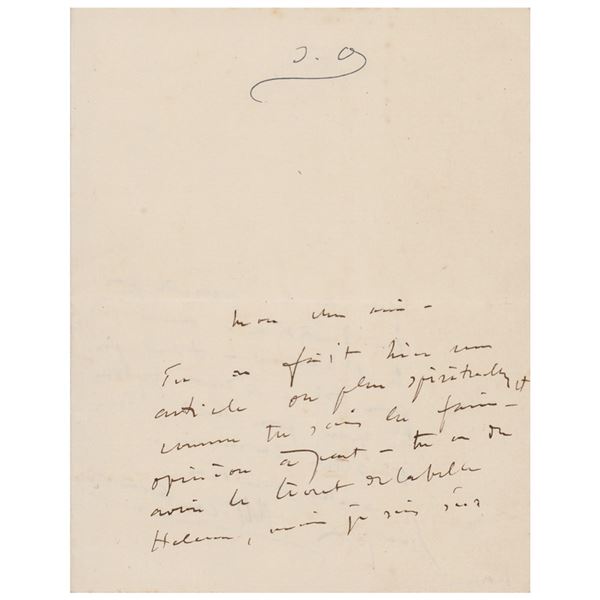 J. O
Mon cher ami -
Tu as fait hier un
article on plus spirituels et
comme tu sais les faire -
opinion à part - tu as du
avoir le livret de la belle
Helene, mais je suis sûr